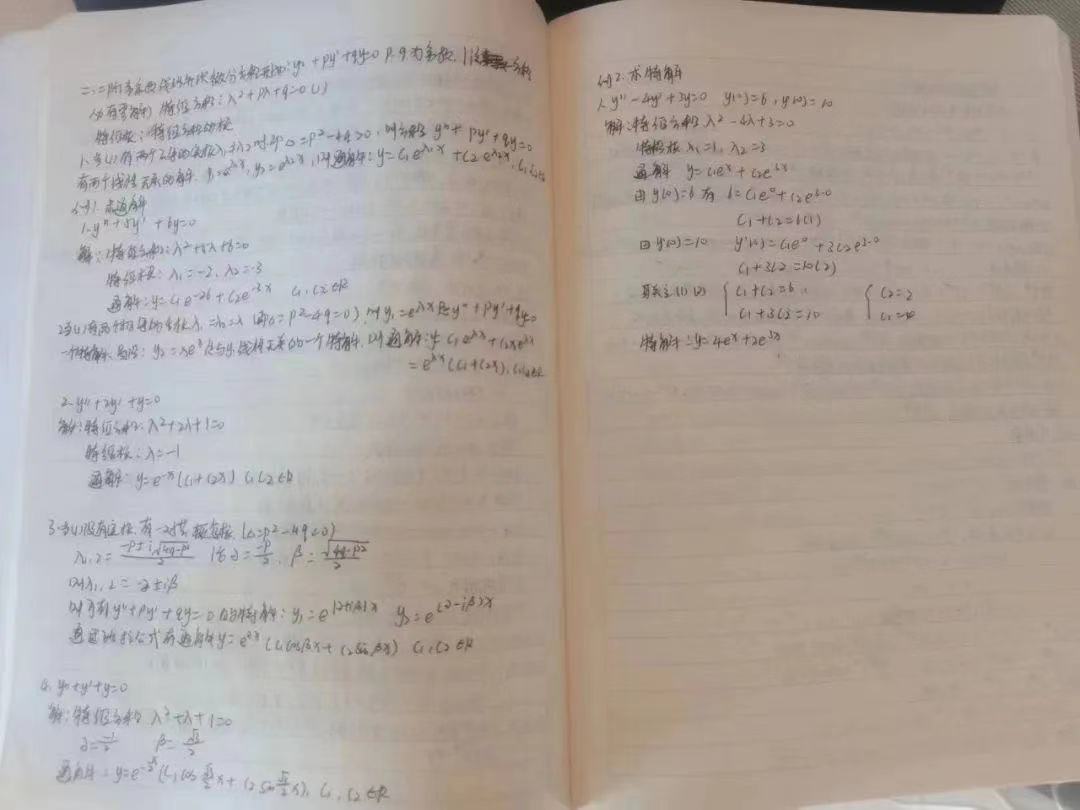 二、二阶常系数线性齐次微分方程形如: y″+py′+qy=0 p.q为常数.
特征方程: λ²+pλ+q=0 (1)
特征根: 特征方程的根
1.当(1)有两个不等的实根λ₁≠λ₂时 即△=p²-4q>0, 则方程 y″+py′+qy=0
有两个线性无关的解. y₁=e^λ₁x, y₂=e^λ₂x, 则通解: y=C₁e^λ₁x+C₂e^λ₂x, C₁,C₂∈R
例1. 求通解
1.y″+5y′+6y=0
解: 特征方程: λ²+5λ+6=0
特征根: λ₁=-2, λ₂=-3
通解: y=C₁e^-2x+C₂e^-3x C₁,C₂∈R
2.当(1)有两个相等的实根λ₁=λ₂=λ (即△=p²-4q=0), 则y₁=e^λx是y″+py′+qy=0
一个特解. 是与y₁线性无关的一个特解, 则通解: y=C₁e^λx+C₂xe^λx
=e^λx(C₁+C₂x), C₁,C₂∈R
2.y″+2y′+y=0
解: 特征方程: λ²+2λ+1=0
特征根: λ=-1
通解: y=e^-x(C₁+C₂x) C₁C₂∈R
3.当(1)没有实根, 有一对共轭复根. (△=p²-4q<0)
λ₁,₂=(-p±i√(4q-p²))/2 α=-p/2, β=√(4q-p²)/2
则λ₁,₂=α±iβ
则可有y″+py′+qy=0的特解: y₁=e^(α+iβ)x y₂=e^(α-iβ)x
通过欧拉公式有通解y=e^αx(C₁cosβx+C₂sinβx) C₁,C₂∈R
4.y″+y′+y=0
解: 特征方程 λ²+λ+1=0
α=-1/2 β=√3/2
通解: y=e^-½x(C₁cos√3/2x+C₂sin√3/2x), C₁,C₂∈R
例2. 求特解
1.y″-4y′+3y=0 y(0)=6, y′(0)=10
解:特征方程λ²-4λ+3=0
特征根 λ₁=1, λ₂=3
通解 y=C₁e^x+C₂e^3x
由y(0)=6 有 6=C₁e^0+C₂e^3·0
C₁+C₂=6(1)
由y′(0)=10 y′(0)=C₁e^0+3C₂e^3·0
C₁+3C₂=10(2)
(1)(2) { C₁+C₂=6 { C₂=2
C₁+3C₂=10 C₁=4
特解: y=4e^x+2e^3x